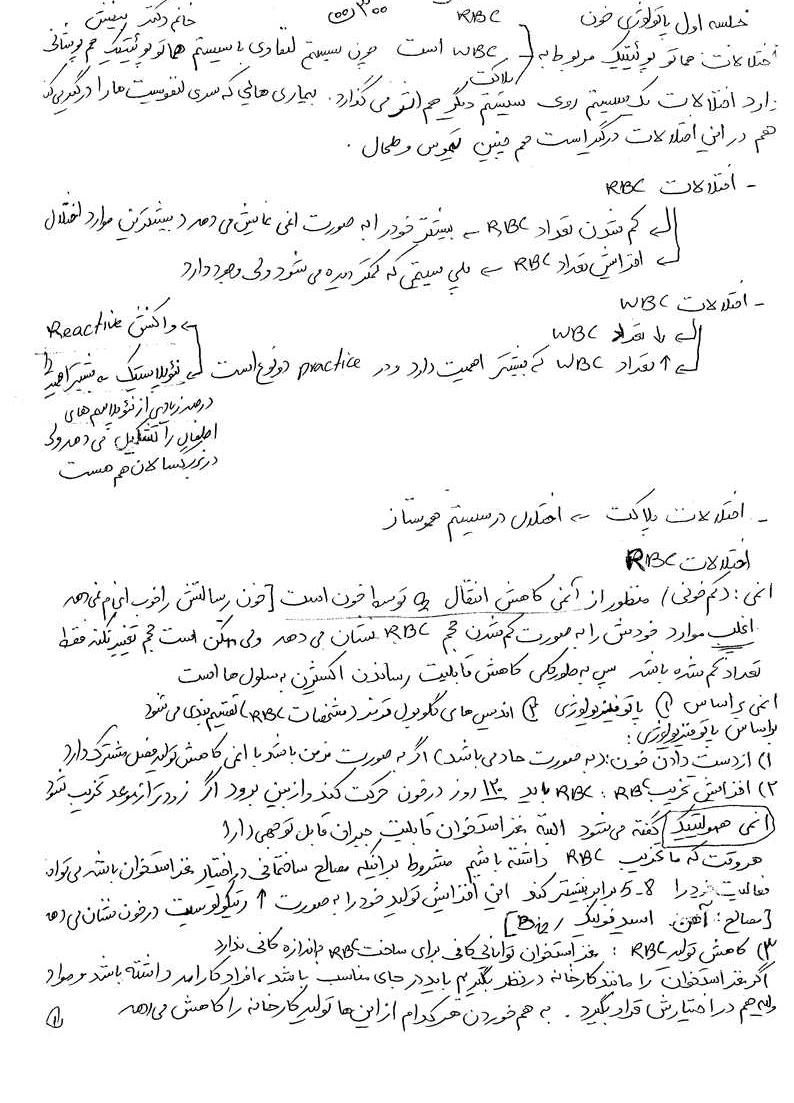 جلسه اول پاتولوژی خون RBC خانم دکتر
اختلالات هماتوپوئتیک مربوط به WBC است چون سیستم لنفاوی با سیستم هماتوپوئتیک هم پوشانی
پلاکت
دارد اختلالات یک سیستم روی سیستم دیگر هم اثر می گذارد. بیماری هایی که سری لنفوسیت ها را درگیر می کند
هم در این اختلالات درگیر است هم چنین تیموس و طحال.
- اختلالات RBC
کم شدن تعداد RBC ← بیشتر خود را به صورت آنمی نمایش می دهد و بیشترین موارد اختلال
افزایش تعداد RBC ← پلی سیتمی که کمتر دیده می شود ولی وجود دارد
- اختلالات WBC
↓ تعداد WBC
↑ تعداد WBC که بیشتر اهمیت دارد و در practice دو نوع است
واکنشی Reactive
نئوپلاستیک ← بیشتر اهمیت
درصد زیادی از نئوپلاسم های
اطفال را تشکیل می دهد ولی
در بزرگسالان هم هست
- اختلالات پلاکت ← اختلال در سیستم هموستاز
اختلالات RBC
آنمی: (کم خونی) منظور از آنمی کاهش انتقال O2 توسط خون است [خون رسالتش را خوب انجام نمی دهد
اغلب موارد خودش را به صورت کم شدن حجم RBC نشان می دهد ولی ممکن است حجم تغییر نکند فقط
تعداد کم شده باشد پس به طور کلی کاهش قابلیت رساندن اکسیژن به سلول ها است
آنمی براساس ① پاتوفیزیولوژی ② اندیس های گلوبول قرمز (مشخصات RBC) تقسیم بندی می شود
براساس پاتوفیزیولوژی:
۱) از دست دادن خون: (به صورت حاد می باشد) اگر به صورت مزمن باشد با آنمی کاهش تولید فصل مشترک دارد
۲) افزایش تخریب RBC: RBC باید ۱۲۰ روز در خون حرکت کند و از بین برود اگر زودتر از موعد تخریب شود
آنمی همولیتیک گفته می شود البته مغز استخوان قابلیت جبران قابل توجهی دارد
هر وقت که ما تخریب RBC داشته باشیم مشروط بر اینکه مصالح ساختمانی در اختیار مغز استخوان باشد می تواند
فعالیت خود را 5-8 برابر بیشتر کند این افزایش تولید خود را به صورت ↑ رتیکولوسیت در خون نشان می دهد
[مصالح: آهن، اسید فولیک / B12]
۳) کاهش تولید RBC: مغز استخوان توانایی کافی برای ساخت RBC به اندازه کافی ندارد
اگر مغز استخوان را مانند کارخانه در نظر بگیریم باید در جای مناسب باشد، افراد کارآمد داشته باشد و مواد
اولیه هم در اختیارش قرار بگیرد. به هم خوردن هر کدام از این ها تولید کارخانه را کاهش می دهد
①